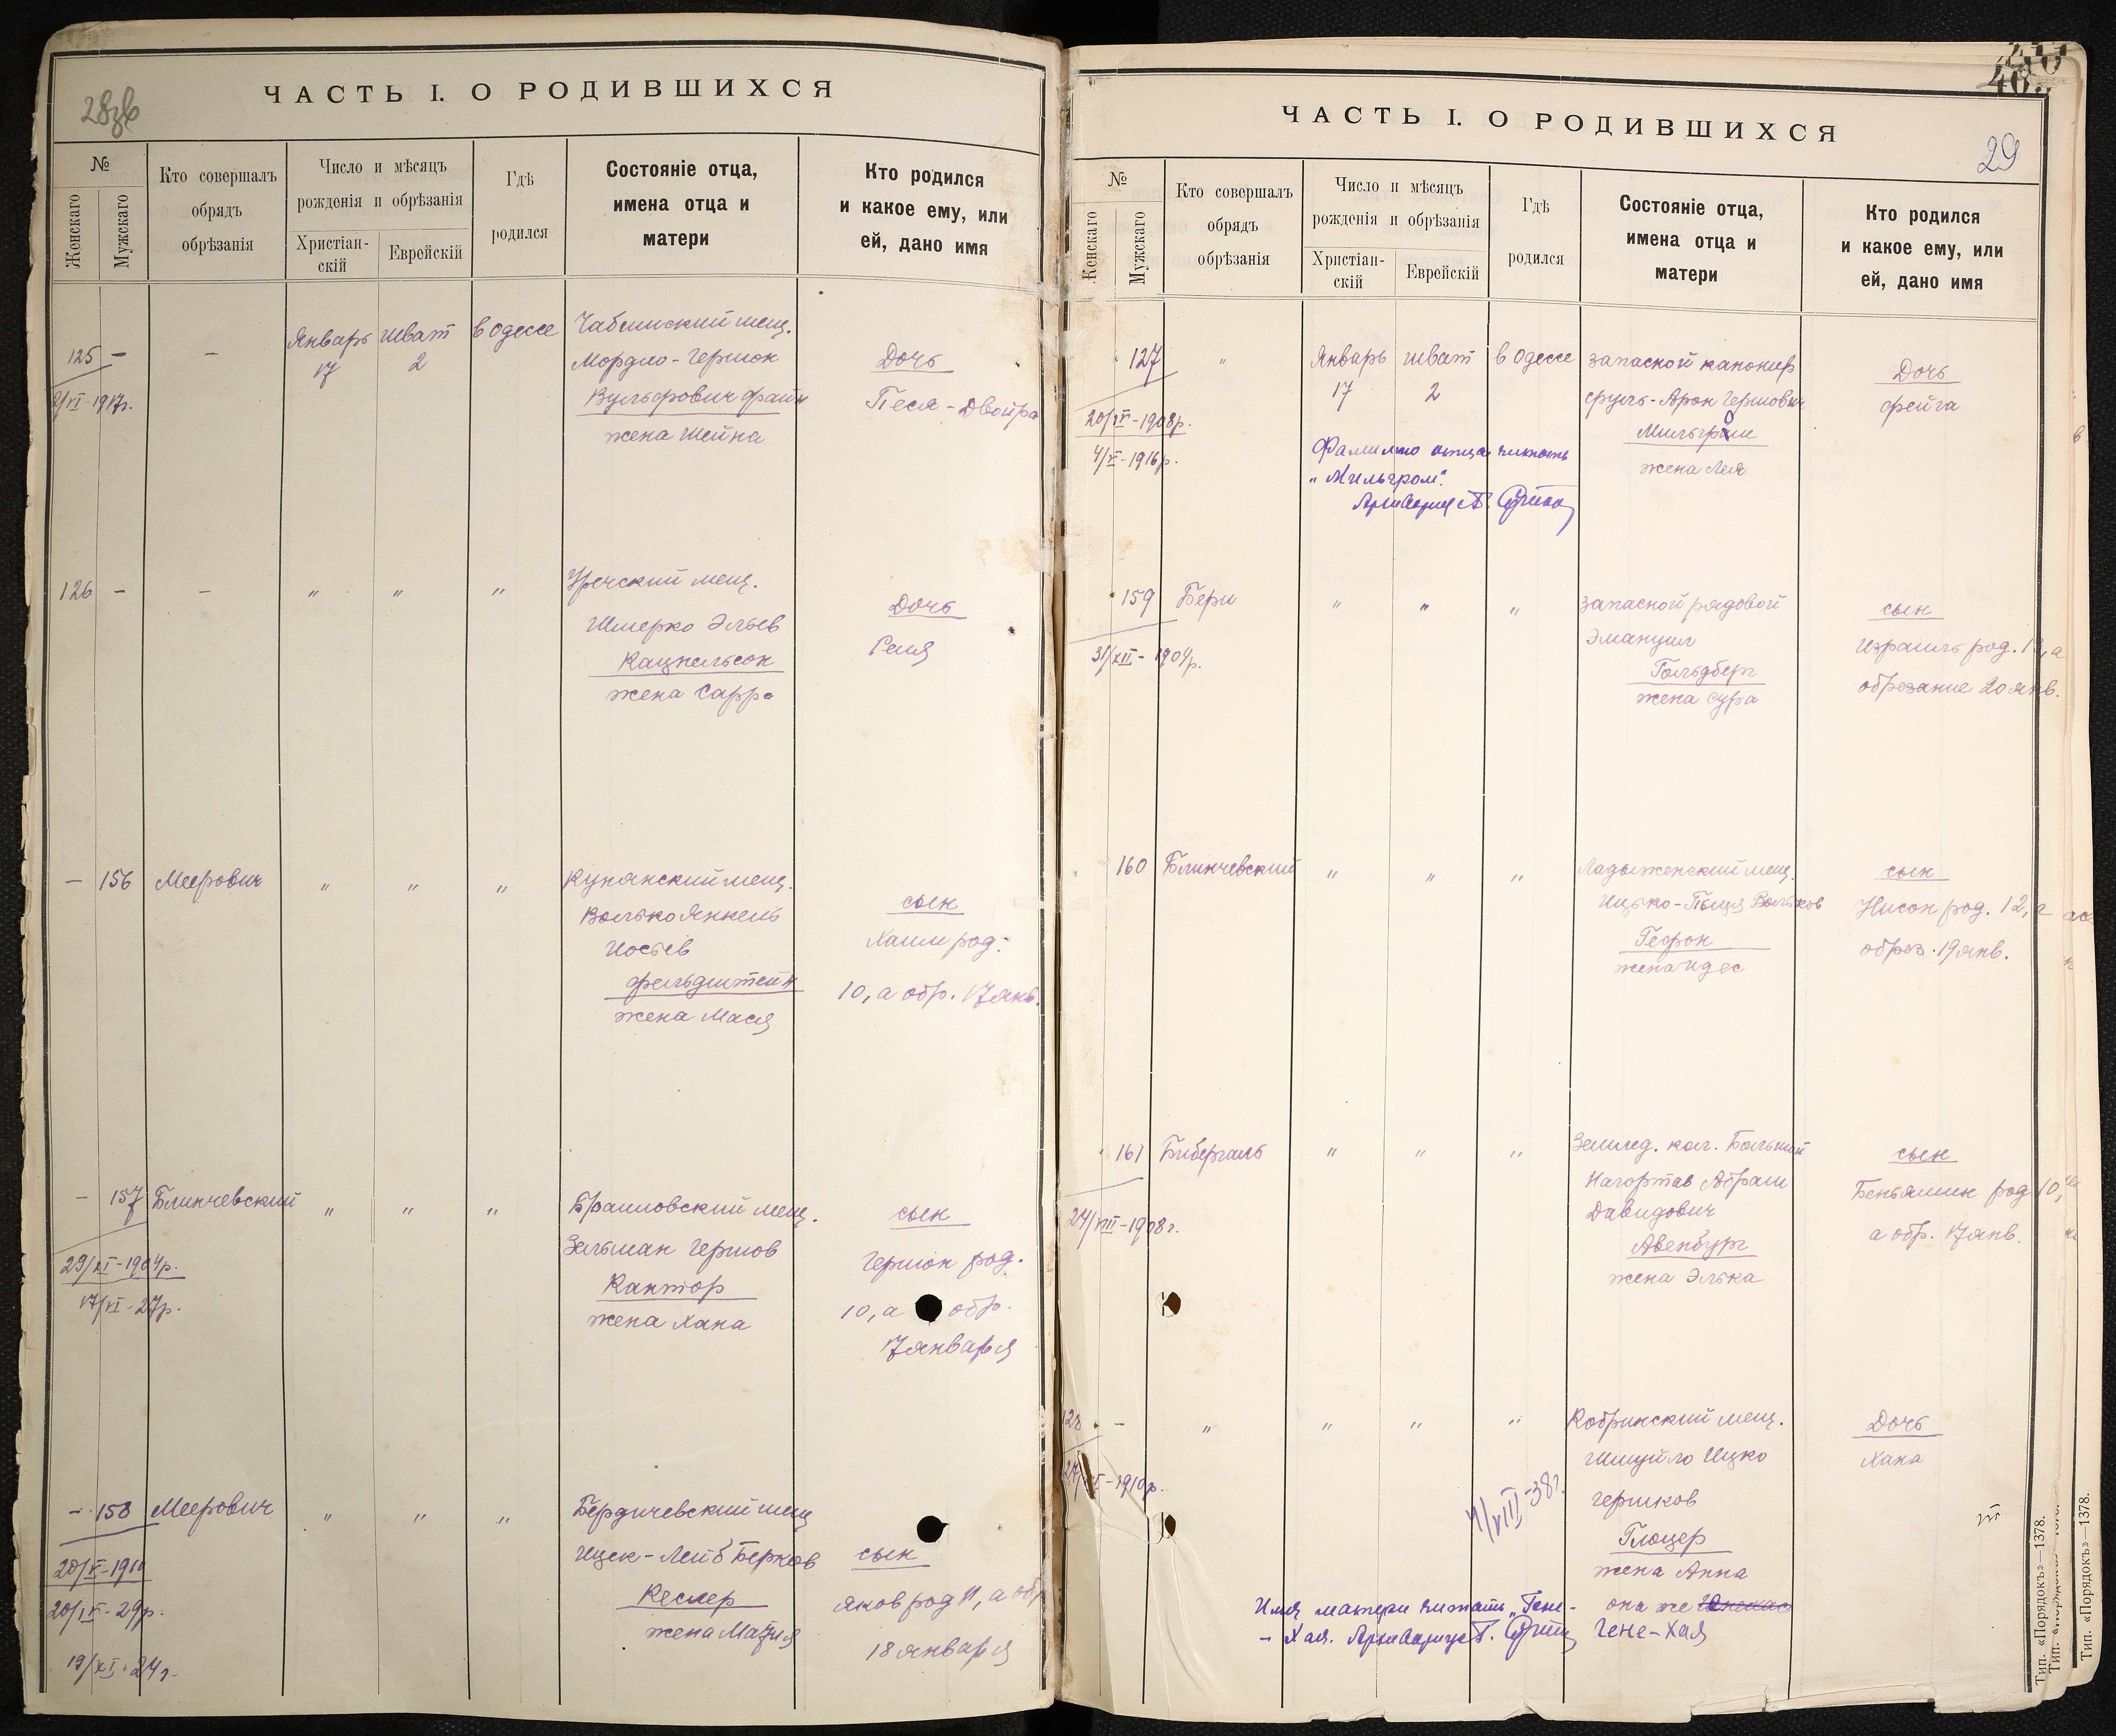 28зв
ЧАСТЬ I. О РОДИВШИХСЯ
№
Женскаго
Мужскаго
Кто совершалъ
обрядъ
обрѣзанія
Число и мѣсяцъ
рожденія и обрѣзанія
Христіан-
скій
Еврейскій
Гдѣ
родился
Состояніе отца,
имена отца и
матери
Кто родился
и какое ему, или
ей, дано имя
125 — — Январь Шват в Одессе
17 2
мещ.
Мордко-Гершон
Вульфович Файн
жена Шейна
Дочь
Песя-Двойра
126 — — " " "
мещ.
Шмерко Эльев
Кацнельсон
жена Сарра
Дочь
— 156 Меерович " " "
Купянский мещ.
Волько Янкель
Иосьев
Фельдштейн
жена Мася
сын
Хаим род.
10, а обр. 17 янв.
— 157 Блинчевский " " "
29/XI-1904р.
17/VI-27р.
Браиловский мещ.
Зельман Гершов
Кантор
жена Хана
сын
Гершон род.
10, а обр.
17 января
— 158 Меерович " " "
20/IV-29р.
19/XI-24г.
Бердичевский мещ
Ицек-Лейб Берков
Кеслер
жена
сын
Яков род 11, а обр
18 января
ЧАСТЬ I. О РОДИВШИХСЯ
29
№
Женскаго
Мужскаго
Кто совершалъ
обрядъ
обрѣзанія
Число и мѣсяцъ
рожденія и обрѣзанія
Христіан-
скій
Еврейскій
Гдѣ
родился
Состояніе отца,
имена отца и
матери
Кто родился
и какое ему, или
ей, дано имя
127 " Январь Шват в Одессе
17 2
20/IV-1908р.
4/VI-1916р.
запасной канонир
Сруль-Арон Гершович
Мильгром
жена Лея
Дочь
Фейга
Фамилию отца читать
„Мильгром".
Архивариус
159 Бери " " "
31/XII-1904р.
запасной рядовой
Эмануил
Гольдберг
жена Сура
сын
Израиль род. 13, а
обрезание 20 янв.
160 Блинчевский " " "
Ладыженский мещ.
Вольков
Гефон
жена Идес
сын
Нисон род. 12, а
обрез. 19 янв.
161 Бибергаль " " "
24/VIII-1908г.
Землед. кол. Большой
Нагортав Абрам
Давидович
Авенбург
жена Элька
сын
Беньямин род 10,
а обр. 17 янв.
128 — " " " "
Кобринский мещ.
Шмуйло Ицко
Гершков
Глоцер
жена Анна
она же
Гене-Хая
Дочь
Хана
4/VIII-38г.
Имя матери читать „Гене-
-Хая. Архивариус
Тип. «Порядокъ»—1378.
Тип. «Порядокъ»—1378.